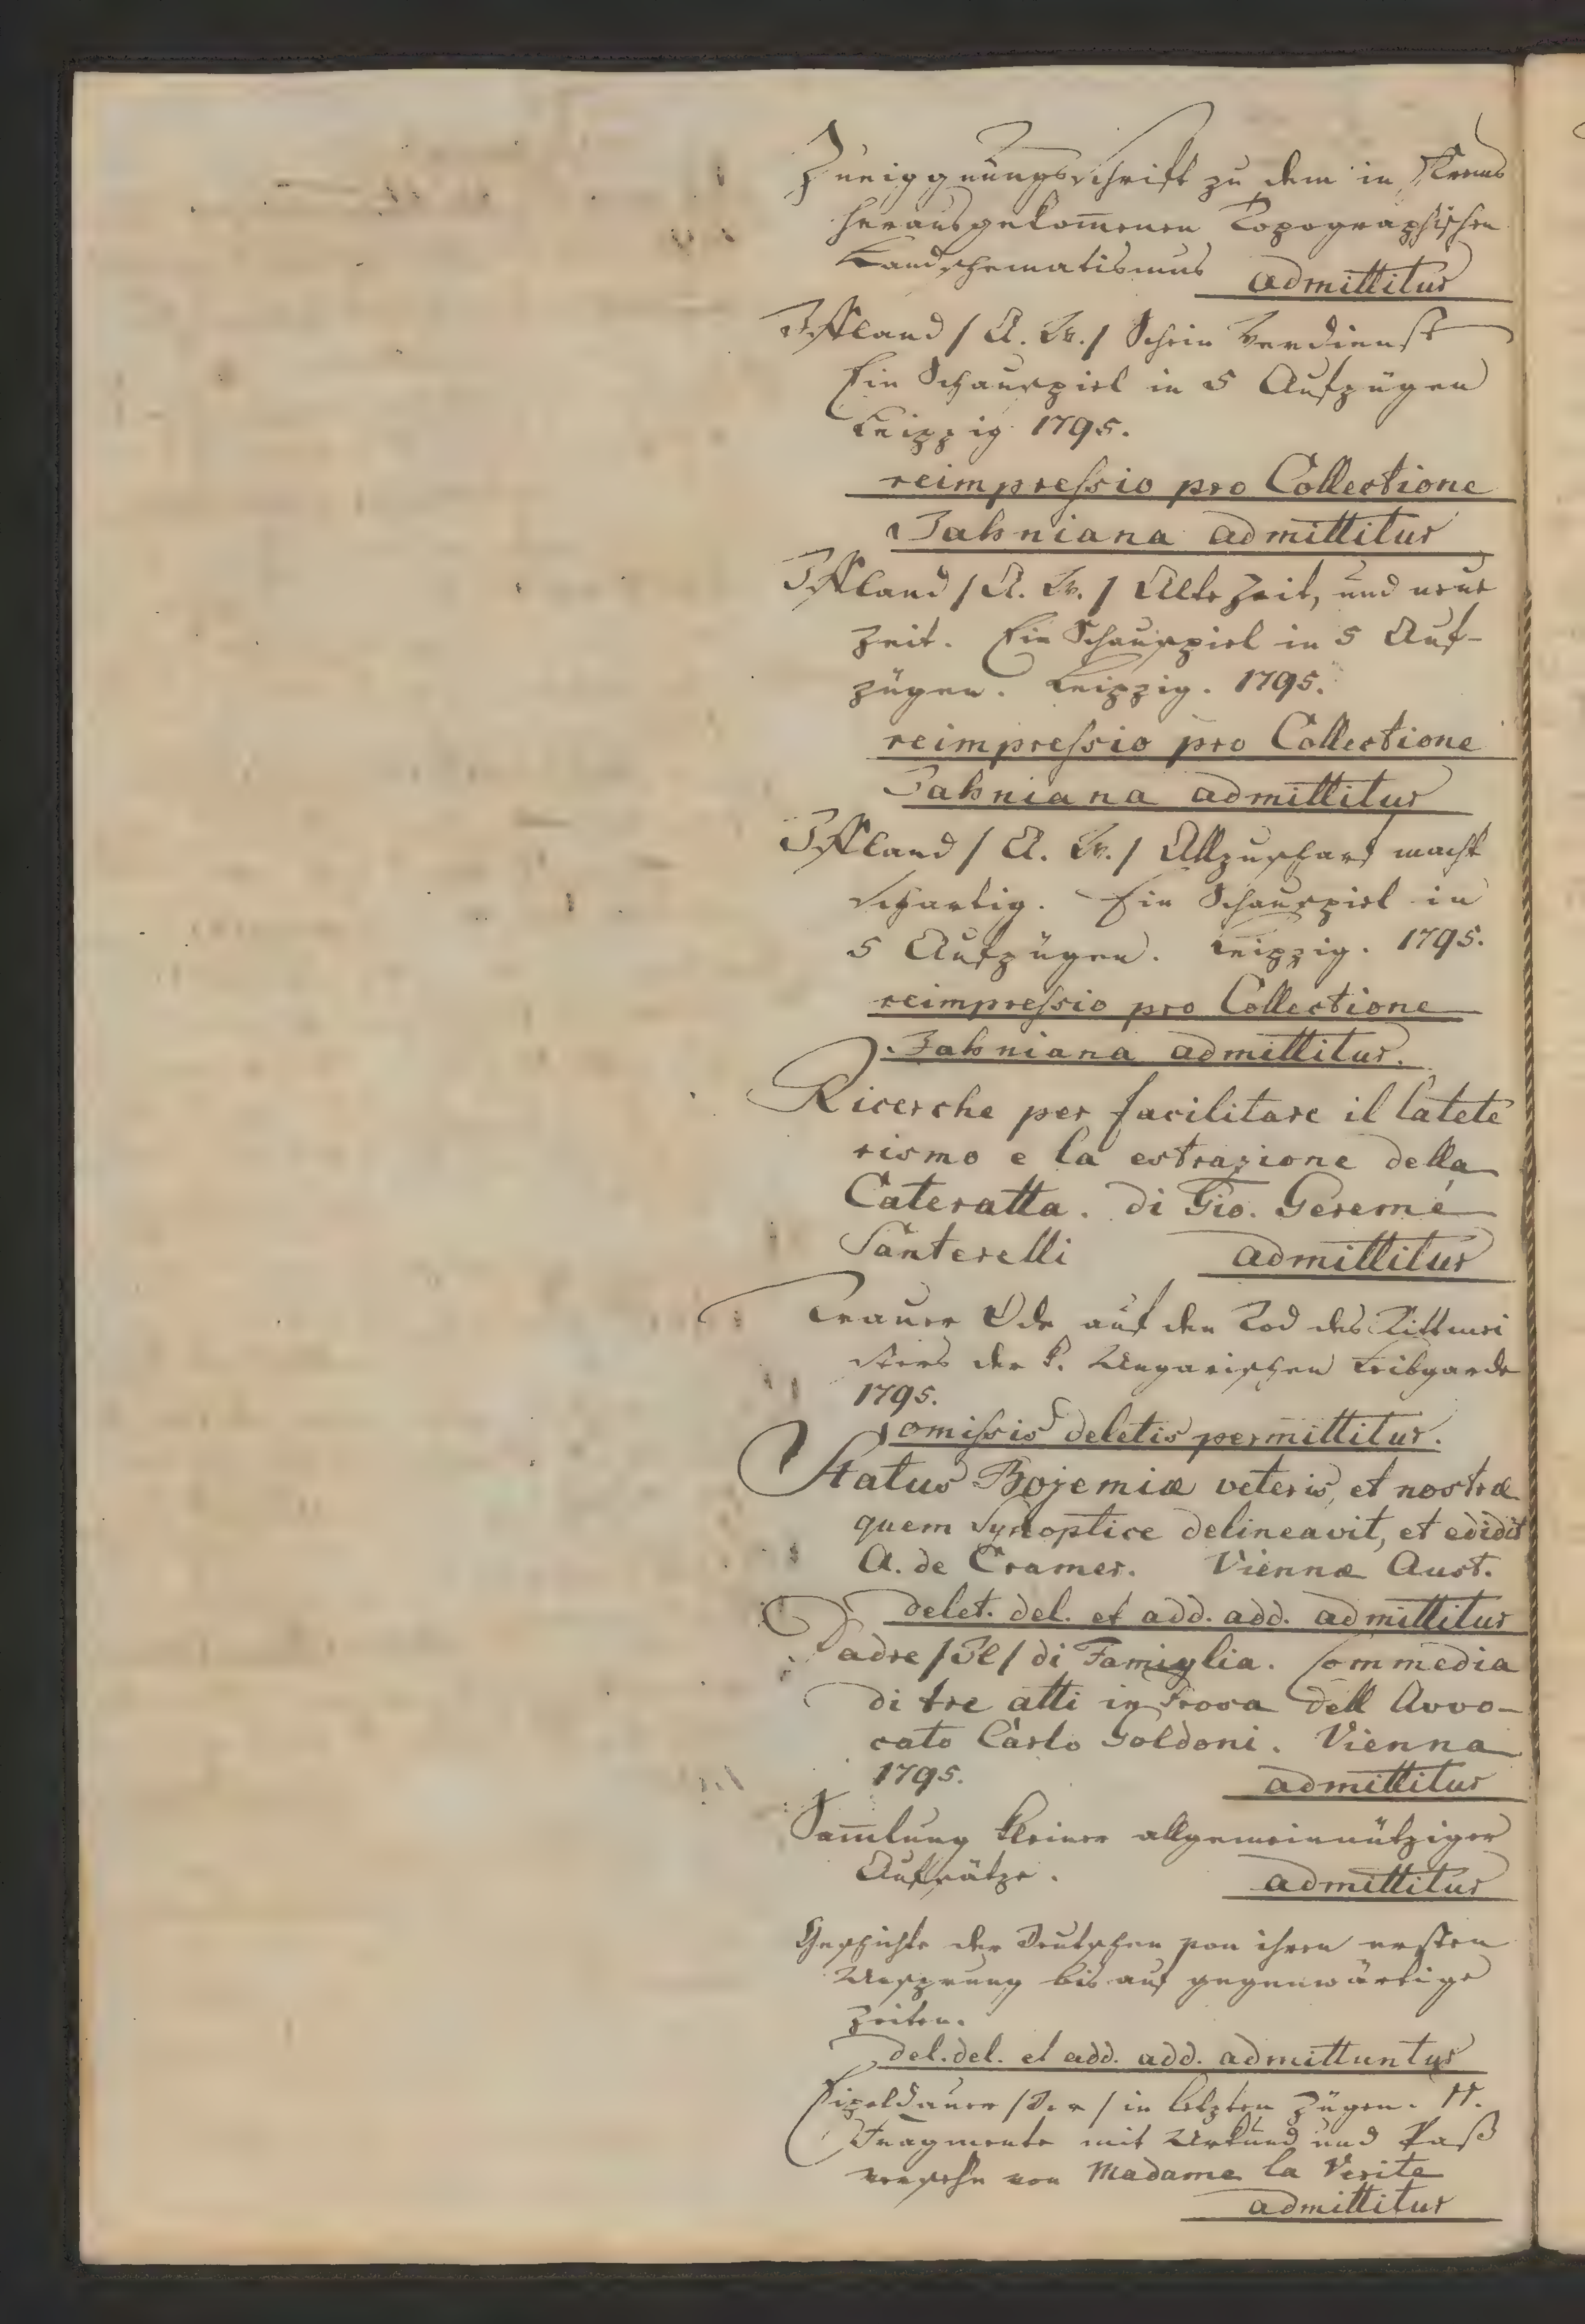 Zueiggnungsschrift zu dem in Krems
herausgekom̅enen Topographischen
Landschematismus admittitur
Iffland / A. W. / Schein Verdienst
Ein Schauspiel in 5 Aufzügen
Leipzig 1795.
reimpreſsio pro Collectione
Jahniana admittitur
Iffland / A. W. / Alte Zeit, und neue
Zeit. Ein Schauspiel in 5 Auf-
zügen. Leipzig. 1795.
reimpreſsio pro Collectione
Jahniana admittitur
Iffland / A. W. / Allzuscharf macht
schartig. Ein Schauspiel in
5 Aufzügen. Leipzig. 1795.
reimpreſsio pro Collectione
Jahniana admittitur.
Ricerche per facilitare il latete
rismo e la estrazione della
Cateratta. di Gio. Geremé
Santerelli admittitur
Trauer Ode auf den Tod des Rittmei
sters der k. Ungarischen Leibgarde
1795.
omiſsis deletis permittitur.
Status Bojemiæ veteris, et nostræ
quem Synoptice delineavit, et edidit
A. de Cramer. Viennæ Aust.
delet. del. et add. add. admittitur
Padre / Il / di Famiglia. Commedia
di tre atti in Prosa dell Avvo-
cato Carlo Goldoni. Vienna
1795. admittitur
Sam̅lung kleiner allgemeinnütziger
Aufsätze. admittitur
Geschichte der Deutschen von ihren ersten
Ursprung bis auf gegenwärtige
Zeiten.
del. del. et add. add. admittuntur
Eipeldauer / Der / in letzten Zügen. 11.
Fragmente mit Urkund und Paß
versehn von Madame la Verite
admittitur